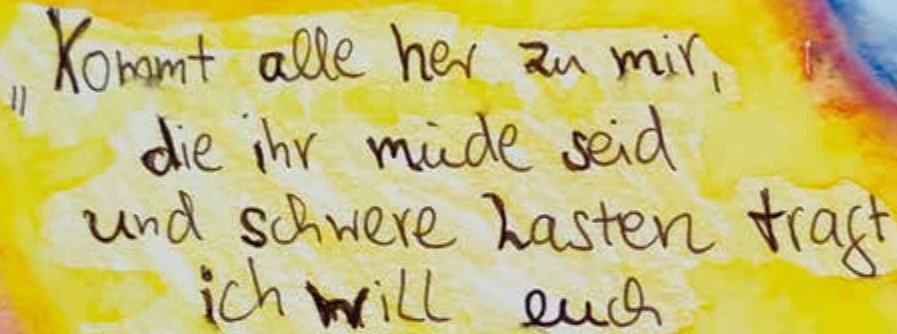 „Kommt alle her zu mir,
die ihr müde seid
und schwere Lasten tragt
ich will euch